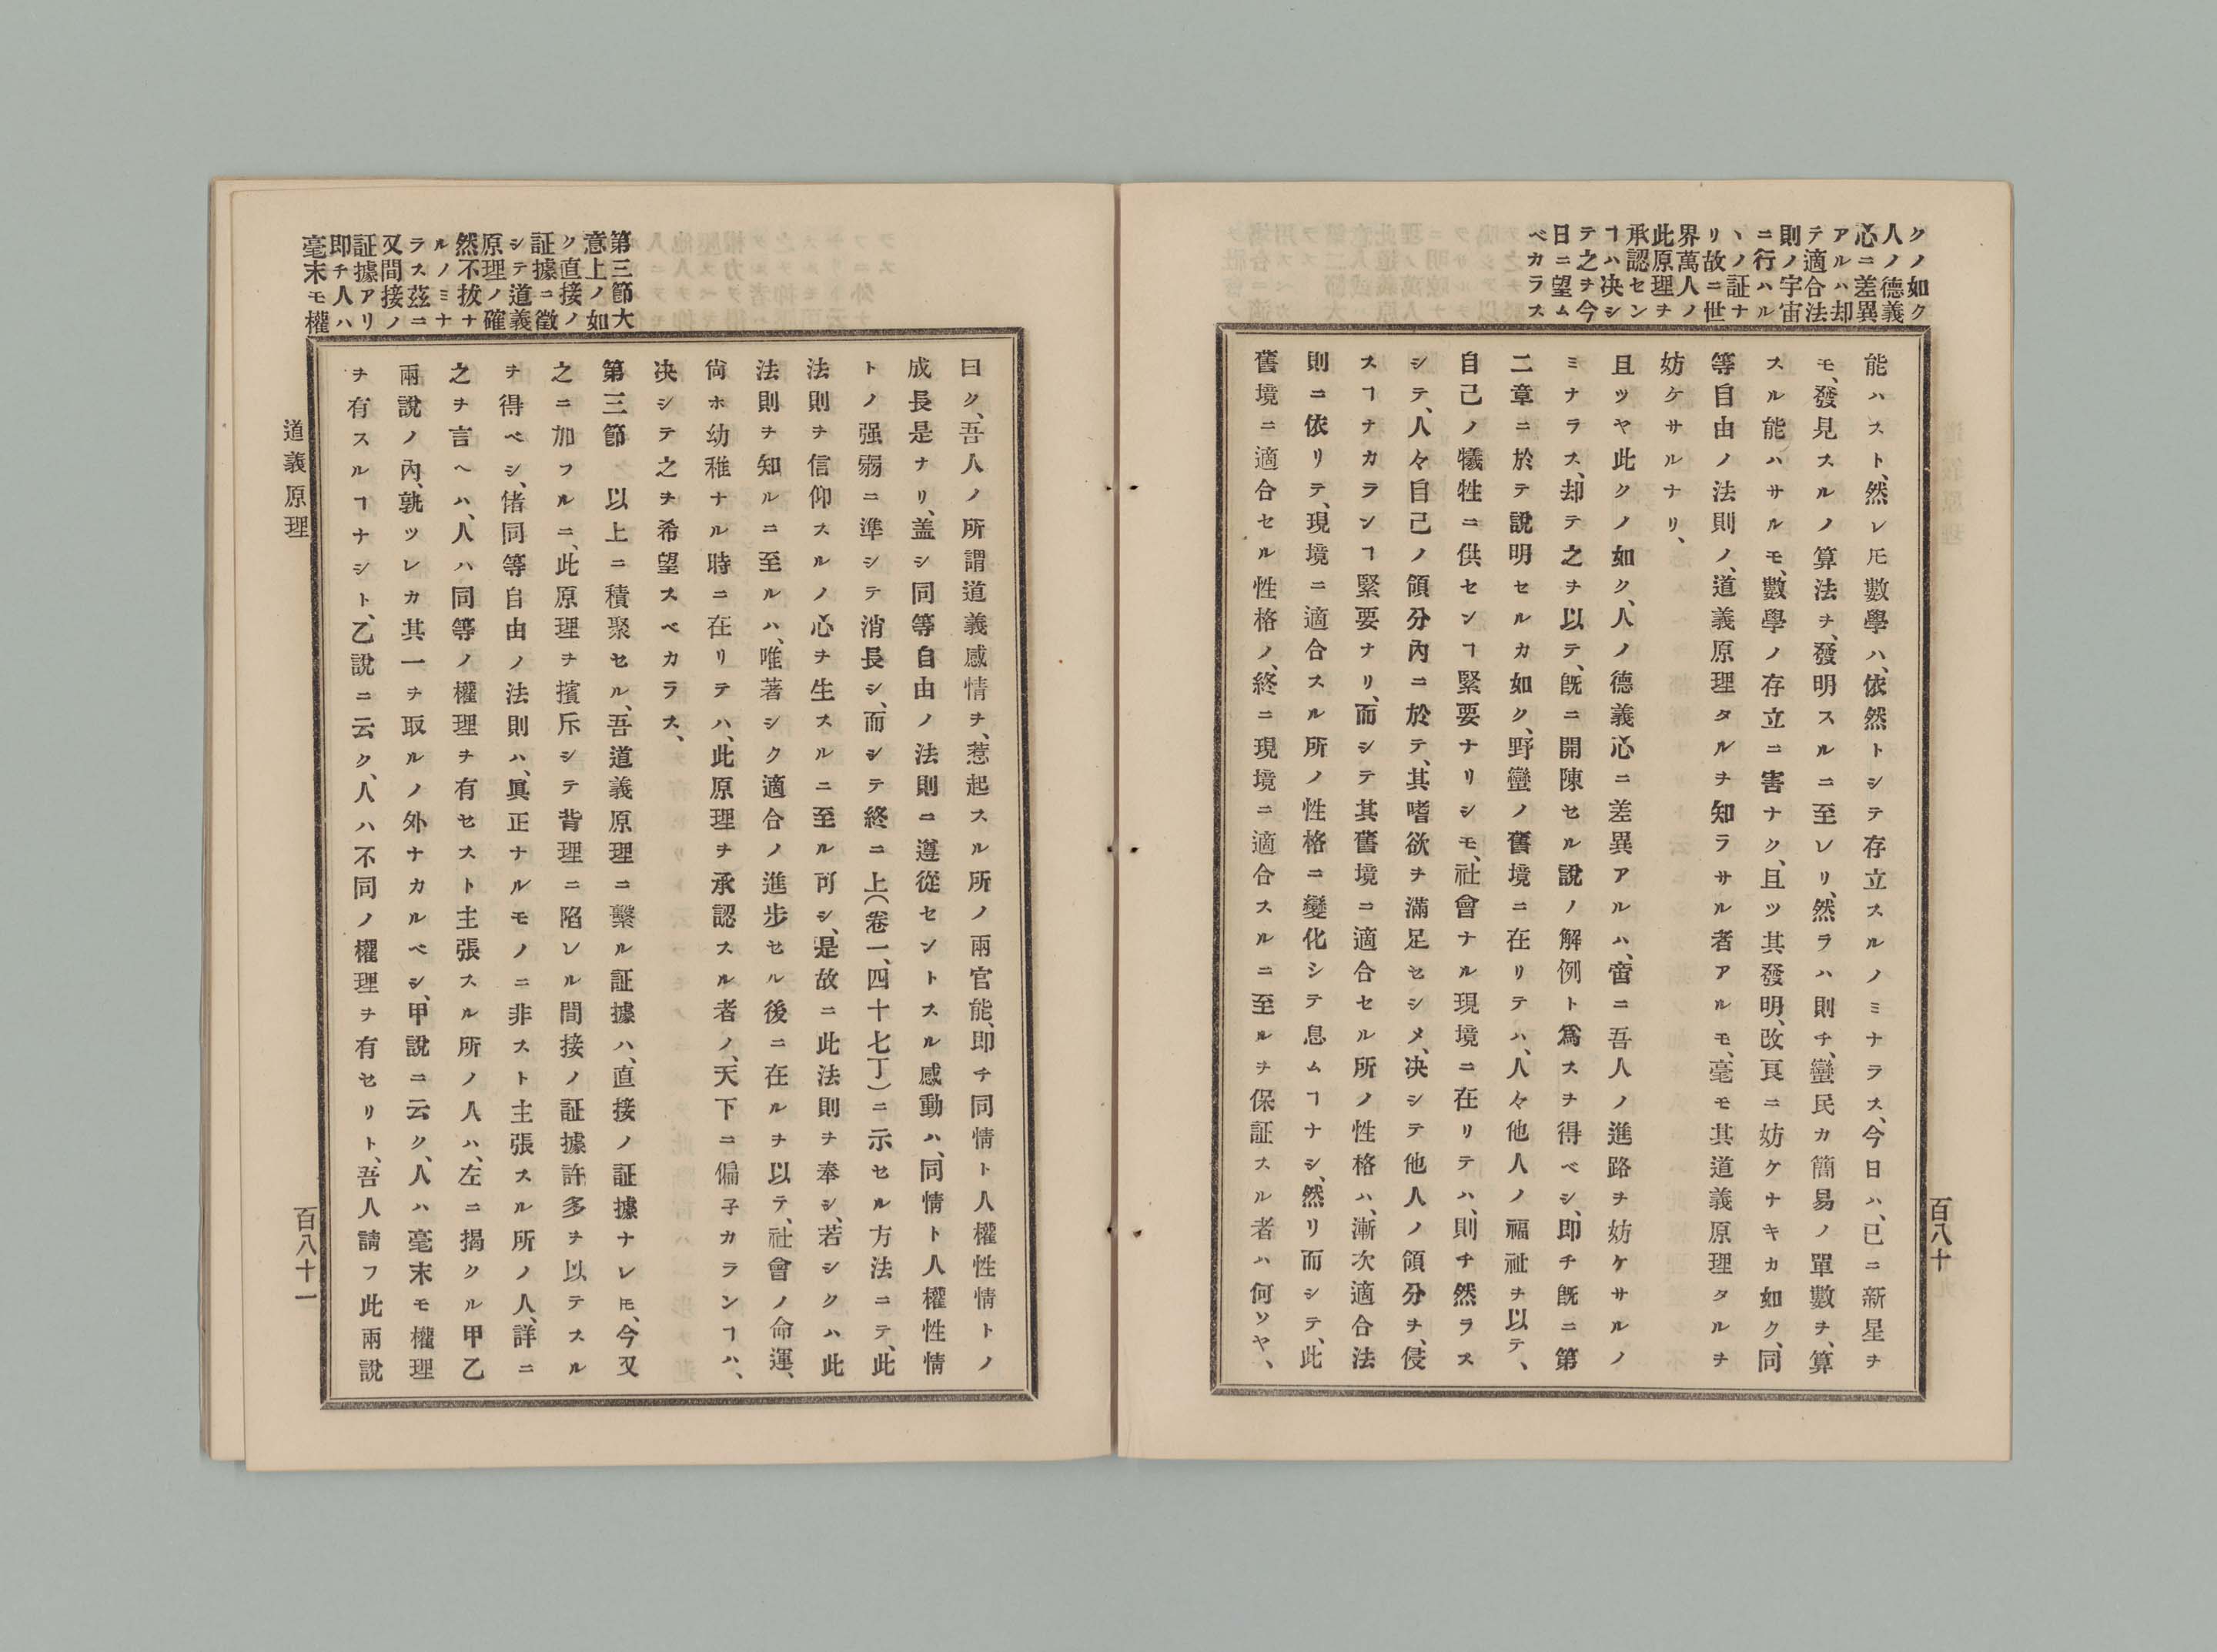 クノ如ク
人ノ德義
心ニ差異
アルハ却
テ適合法
則ノ宇宙
ニ行ハル
ヽノ証ナ
リ故ニ世
界萬人ノ
此原理ヲ
承認セン
ヿハ决シ
テ之ヲ今
日ニ望ム
ベカラス
能ハスト、然レ𪜈數學ハ、依然トシテ存立スルノミナラス、今日ハ、已ニ新星ヲ
モ、發見スルノ算法ヲ、發明スルニ至レリ、然ラハ則チ、蠻民カ簡易ノ單數ヲ、算
スル能ハサルモ、數學ノ存立ニ害ナク、且ツ其發明、改良ニ妨ケナキカ如ク、同
等自由ノ法則ノ、道義原理タルヲ知ラサル者アルモ、毫モ其道義原理タルヲ
妨ケサルナリ、
且ツヤ此クノ如ク、人ノ德義心ニ差異アルハ、啻ニ吾人ノ進路ヲ妨ケサルノ
ミナラス、却テ之ヲ以テ、既ニ開陳セル說ノ解例ト爲スヲ得ベシ、即チ既ニ第
二章ニ於テ說明セルカ如ク、野蠻ノ舊境ニ在リテハ、人々他人ノ福祉ヲ以テ、
自己ノ犧牲ニ供センヿ緊要ナリシモ、社會ナル現境ニ在リテハ、則チ然ラス
シテ、人々自己ノ領分內ニ於テ、其嗜欲ヲ滿足セシメ、决シテ他人ノ領分ヲ、侵
スヿナカランヿ緊要ナリ、而シテ其舊境ニ適合セル所ノ性格ハ、漸次適合法
則ニ依リテ、現境ニ適合スル所ノ性格ニ變化シテ息ムヿナシ、然リ而シテ、此
舊境ニ適合セル性格ノ、終ニ現境ニ適合スルニ至ルヲ保証スル者ハ何ソヤ、
百八十
第三節大
意上ノ如
ク直接ノ
証據ニ徵
シテ道義
原理ノ確
然不拔ナ
ルノミナ
ラス茲ニ
又間接ノ
証據アリ
即チ人ハ
毫末モ權
曰ク、吾人ノ所謂道義感情ヲ、惹起スル所ノ兩官能、即チ同情ト人權性情トノ
成長是ナリ、盖シ同等自由ノ法則ニ遵從セントスル感動ハ、同情ト人權性情
トノ强弱ニ準シテ消長シ、而シテ終ニ上(卷一、四十七丁)ニ示セル方法ニテ、此
法則ヲ信仰スルノ心ヲ生スルニ至ル可シ、是故ニ此法則ヲ奉シ、若シクハ此
法則ヲ知ルニ至ルハ、唯著シク適合ノ進步セル後ニ在ルヲ以テ、社會ノ命運、
尙ホ幼稚ナル時ニ在リテハ、此原理ヲ承認スル者ノ、天下ニ偏子カランヿハ、
决シテ之ヲ希望スベカラス、
第三節　以上ニ積聚セル、吾道義原理ニ繫ル証據ハ、直接ノ証據ナレ𪜈、今又
之ニ加フルニ、此原理ヲ擯斥シテ背理ニ陷レル間接ノ証據許多ヲ以テスル
ヲ得ベシ、偖同等自由ノ法則ハ、眞正ナルモノニ非スト主張スル所ノ人、詳ニ
之ヲ言ヘハ、人ハ同等ノ權理ヲ有セスト主張スル所ノ人ハ、左ニ揭クル甲乙
兩說ノ內、孰ツレカ其一ヲ取ルノ外ナカルベシ、甲說ニ云ク、人ハ毫末モ權理
ヲ有スルヿナシト、乙說ニ云ク、人ハ不同ノ權理ヲ有セリト、吾人請フ此兩說
道義原理
百八十一